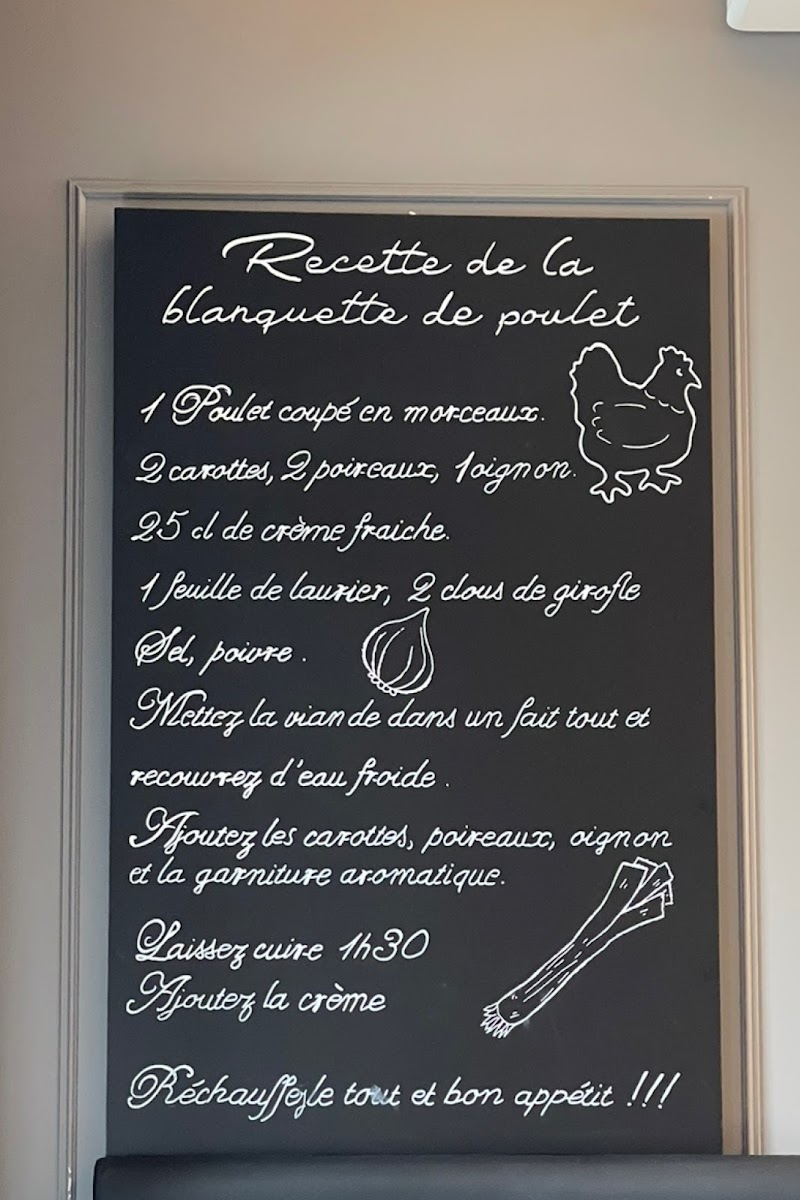 Recette de la
blanquette de poulet
1 Poulet coupé en morceaux.
2 carottes, 2 poireaux, 1 oignon.
25 cl de crème fraiche.
1 feuille de laurier, 2 clous de girofle
Sel, poivre .
Mettez la viande dans un fait tout et
recouvrez d'eau froide .
Ajoutez les carottes, poireaux, oignon
et la garniture aromatique.
Laissez cuire 1h30
Ajoutez la crème
Réchauffez le tout et bon appétit !!!